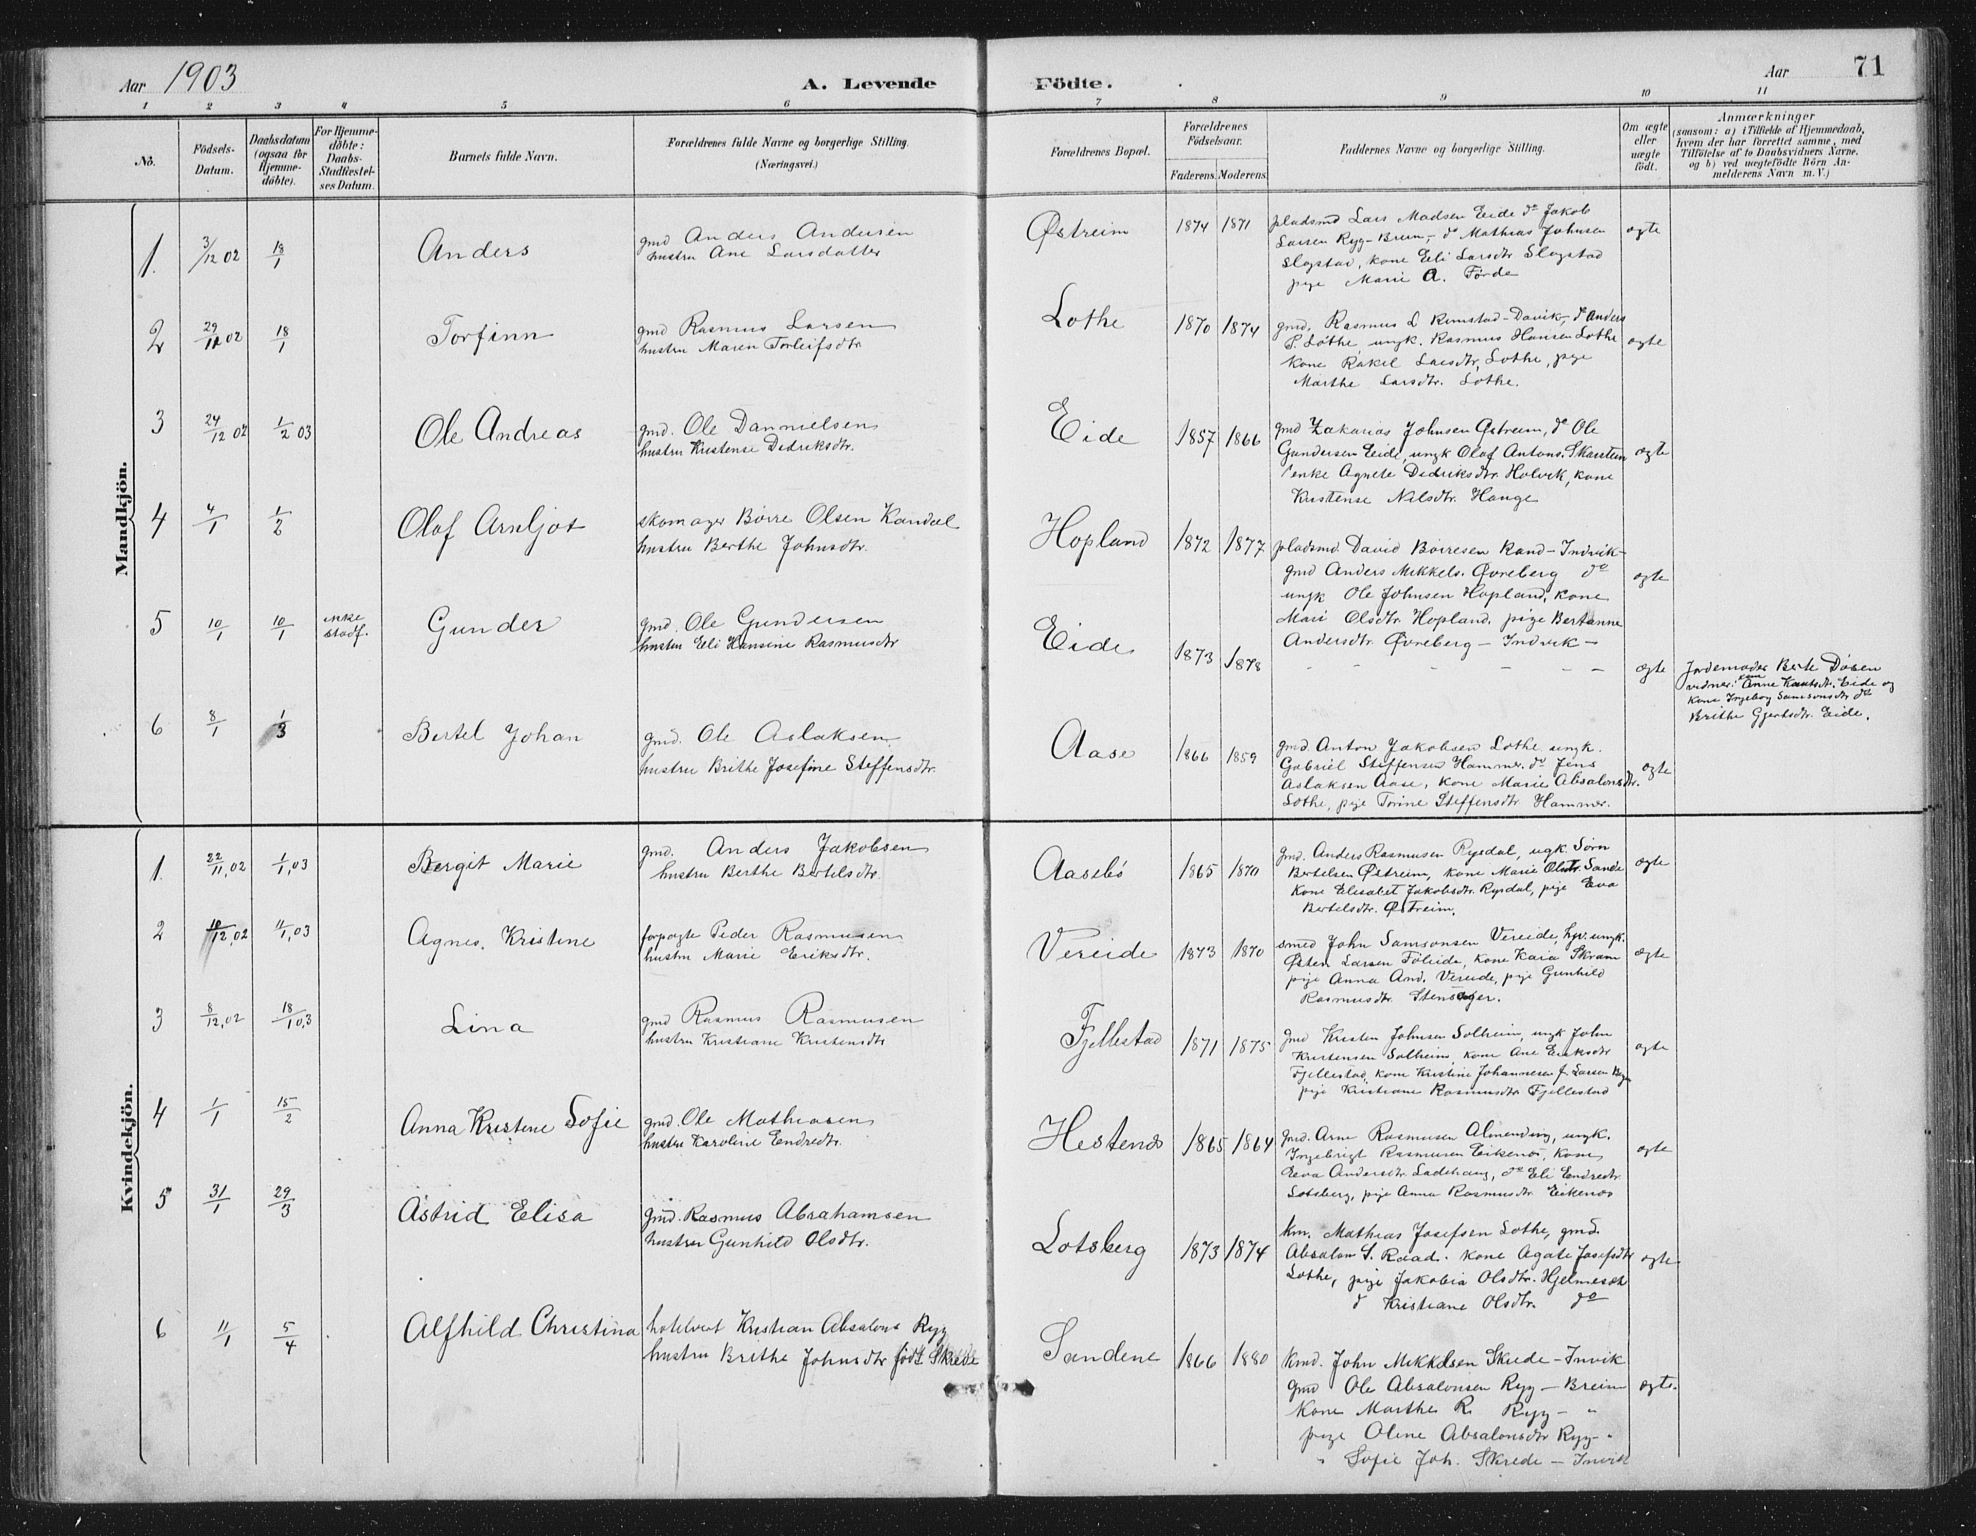 Aar 1903 A. Levende Födte. Aar 71
1 2 3 4 5 6 7 8 9 10 11
No. Födsels-Datum. Daabsdatum (ogsaa for Hjemme-döbte). For Hjemme-döbte: Daabs-Stadfæstel-ses Datum. Barnets fulde Navn. Forældrenes fulde Navne og borgerlige Stilling. (Næringsvei.) Forældrenes Bopæl. Forældrenes Födselsaar. Faderens. Moderens. Faddernes Navne og borgerlige Stilling. Om ægte eller uægte födt. Anmærkninger (saasom: a) i Tilfælde af Hjemmedaab, hvem der har forrettet samme, med Tilföielse af to Daabsvidners Navne. og b) ved uægtefödte Börn An-melderens Navn m. V.)
Mandkjön.
1. 3/12 02 18/1 Anders
gmd Anders Andersen
hustru Ane Larsdatter
Østreim 1874 1871
pladsmd Lars Madsen Eide do Jakob
Larsen Ryg-Breim, do Mathias Johnsen
Slagstad, kone Eli Larsdtr Slagstad
pige Marie A. Förde
ægte
2 29/12 02 18/1 Torfinn
gmd Rasmus Larsen
hustru Maren Torleifsdtr
Lothe 1870 1874
gmd. Rasmus L Rimstad-Davik, do Anders
P. Lothe, ungk. Rasmus Hansen Lothe
kone Rakel Larsdtr, Lothe, pige
Marthe Larsdtr. Lothe.
ægte
3 24/12 02 1/2 03 Ole Andreas
gmd. Ole Dannielsen
hustru Kristense Didriksdtr.
Eide 1857 1866
gmd Zakarias Johnsen Østreim, do Ole
Gundersen Eide, ungk Olaf Antons. Skarstein
enke Agnete Didriksdtr. Holvik, kone
Kristense Nilsdtr. Hauge
ægte
4 4/1 1/2 Olaf Arneljot
skomager Börre Olsen Kandal
hustru Berthe Johnsdtr.
Hopland 1872 1877
pladsmd. David Börresen Rand-Indvik-
gmd Anders Mikkels. Øvreberg do
ungk Ole Johnsen Hopland, kone
Mari Olsdtr. Hopland, pige Bertanne
Andersdtr. Øvreberg - Indvik -
ægte
5 10/1 10/1 ikke stadf. Gunder
gmd. Ole Gundersen
hustru Eli Hansine Rasmusdtr
Eide 1873 1878
- - - - - -
ægte
Jordemoder Berte Dösen
vidner: kone Anne Knutsdtr. Eide og
kone Ingebog Samsonsdtr do
Brithe Gjertsdtr. Eide.
6 8/1 1/3 Bertel Johan
gmd. Ole Aslaksen
hustru Brithe Josefine Steffensdtr.
Aase 1866 1859
gmd. Anton Jakobsen Lothe, ungk.
Gabriel Steffensen Hammer, do Jens
Aslaksen Aase, kone Marie Absalonsdtr.
Lothe, pige Torine Steffensdtr Hammer.
ægte
Kvindekjön.
1. 22/11,02 1/1,03 Bergit Marie
gmd. Anders Jakobsen
hustru Berthe Bertelsdtr.
Aasebö 1865 1870
gmd. Anders Rasmusen Rysdal, ugk. Sörn
Bertelsen Østreim, kone Marie Olsdtr. Sande
kone Elisabet Jakobsdtr. Rysdal, pige Eva
Bertelsdtr. Østreim.
ægte
2 /12,02 11/1,03 Agnes. Kristine
forpagte Peder Rasmusen
hustru Marie Eriksdtr.
Vereide 1873 1870
smed John Samsonsen Vereide, hjv. ungk.
Østen Larsen Föleide, kone Kaia Skram
pige Anna And. Vereide, pige Gunhild
Rasmusdtr. Stensager.
ægte
3 8/12,02 18/1 0,3 Lina
gmd Rasmus Rasmusen
hustru Kristiane Kristensdtr
Fjellestad 1871 1875
gmd Kristen Johnsen Solheim, ungk John
Kristensen Solheim, kone Ane Eriksdtr
Fjellestad, kone Kristine Johannesen f. Larsen
pige Kristiane Rasmusdtr Fjellestad
ægte
4 1/1 15/2 Anna Kristine Sofie
gmd. Ole Mathiasen
hustru Karoline Endredtr.
Hestenes 1865 1864
gmd. Arne Rasmusen Almending, ungk.
Ingebrigt Rasmusen Eikenes, kone
Eeva Andersdtr Ladehaug, do Eli Endredtr
Lotsberg, pige Anna Rasmusdtr. Eikenes
ægte
5 31/1 29/3 Astrid Elisa
gmd. Rasmus Abrahamsen
hustru Gunhild Olsdtr.
Lotsberg 1873 1874
km. Mathias Josefsen Lothe, gmd.
Absalon S. Raad. kone Agate Josefsdtr
Lothe, pige Jakobia Olsdtr. Hjelmeset
d Kristiane Olsdtr. do
ægte
6 11/1 5/4 Alfhild Christina
hotelvert Kristian Absalons Ryg
hustru Brithe Johnsdtr född Skrede
Sandene 1866 1880
kmd. John Mikkelsen Skrede - Invik
gmd Ole Absalonsen Ryg - Breim
Kone Marthe R. Ryg - "
pige Oline Absalonsdtr Ryg - "
" Sofie Joh. Skrede - Invik
ægte.